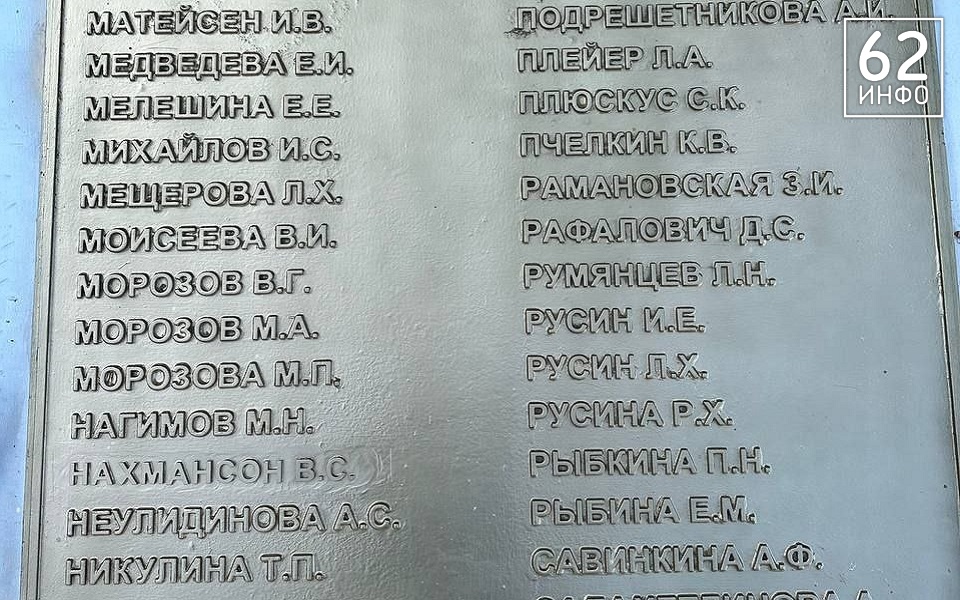 МАТЕЙСЕН И.В.
МЕДВЕДЕВА Е.И.
МЕЛЕШИНА Е.Е.
МИХАЙЛОВ И.С.
МЕЩЕРОВА Л.Х.
МОИСЕЕВА В.И.
МОРОЗОВ В.Г.
МОРОЗОВ М.А.
МОРОЗОВА М.П.
НАГИМОВ М.Н.
НАХМАНСОН В.С.
НЕУЛИДИНОВА А.С.
НИКУЛИНА Т.П.
ПОДРЕШЕТНИКОВА А.И.
ПЛЕЙЕР Л.А.
ПЛЮСКУС С.К.
ПЧЕЛКИН К.В.
РАМАНОВСКАЯ З.И.
РАФАЛОВИЧ Д.С.
РУМЯНЦЕВ Л.Н.
РУСИН И.Е.
РУСИН Л.Х.
РУСИНА Р.Х.
РЫБКИНА П.Н.
РЫБИНА Е.М.
САВИНКИНА А.Ф.
62
ИНФО